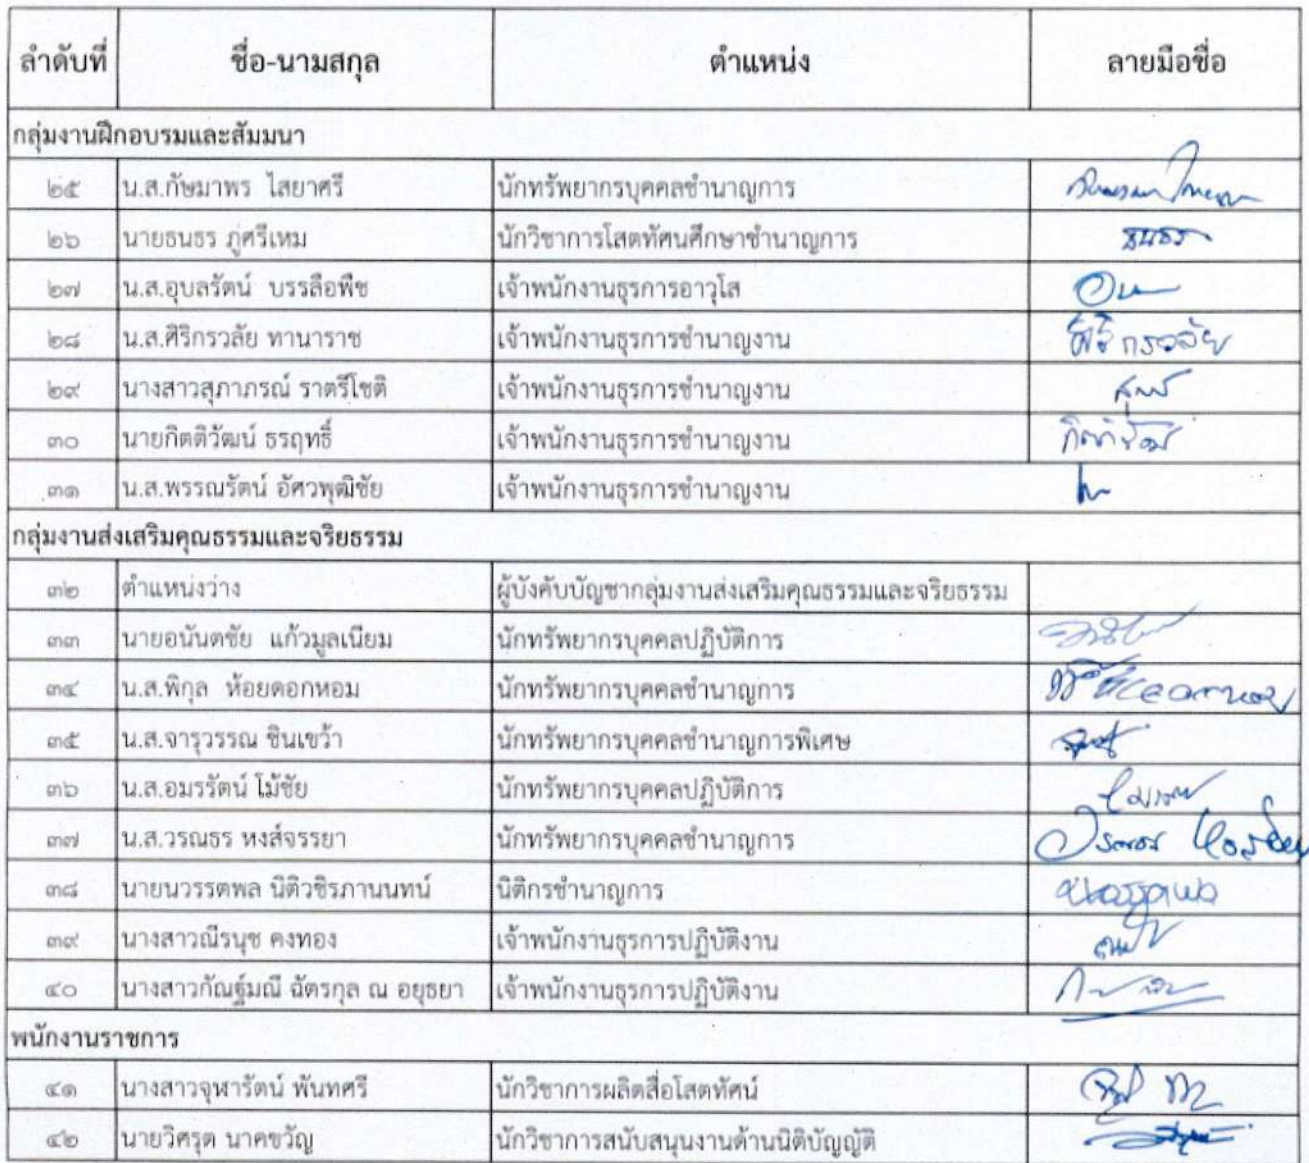 ลำดับที่ ชื่อ-นามสกุล ตำแหน่ง ลายมือชื่อ
กลุ่มงานฝึกอบรมและสัมมนา
๒๕ น.ส.กัษมาพร ไสยาศรี นักทรัพยากรบุคคลชำนาญการ
๒๖ นายธนธร ภู่ศรีเหม นักวิชาการโสตทัศนศึกษาชำนาญการ ธนธร
๒๗ น.ส.อุบลรัตน์ บรรลือพืช เจ้าพนักงานธุรการอาวุโส
๒๘ น.ส.ศิริกรวลัย ทานาราช เจ้าพนักงานธุรการชำนาญงาน ศิริกรวลัย
๒๙ นางสาวสุภาภรณ์ ราตรีโชติ เจ้าพนักงานธุรการชำนาญงาน
๓๐ นายกิตติวัฒน์ ธรฤทธิ์ เจ้าพนักงานธุรการชำนาญงาน
๓๑ น.ส.พรรณรัตน์ อัศวพุฒิชัย เจ้าพนักงานธุรการชำนาญงาน
กลุ่มงานส่งเสริมคุณธรรมและจริยธรรม
๓๒ ตำแหน่งว่าง ผู้บังคับบัญชากลุ่มงานส่งเสริมคุณธรรมและจริยธรรม
๓๓ นายอนันตชัย แก้วมูลเนียม นักทรัพยากรบุคคลปฏิบัติการ
๓๔ น.ส.พิกุล ห้อยดอกหอม นักทรัพยากรบุคคลชำนาญการ
๓๕ น.ส.จารุวรรณ ชินเขว้า นักทรัพยากรบุคคลชำนาญการพิเศษ
๓๖ น.ส.อมรรัตน์ โม้ชัย นักทรัพยากรบุคคลปฏิบัติการ
๓๗ น.ส.วรณธร หงส์จรรยา นักทรัพยากรบุคคลชำนาญการ
๓๘ นายนวรรตพล นิติวชิรภานนทน์ นิติกรชำนาญการ
๓๙ นางสาวณีรนุช คงทอง เจ้าพนักงานธุรการปฏิบัติงาน
๔๐ นางสาวกัณฐ์มณี ฉัตรกุล ณ อยุธยา เจ้าพนักงานธุรการปฏิบัติงาน
พนักงานราชการ
๔๑ นางสาวจุฬารัตน์ พันทศรี นักวิชาการผลิตสื่อโสตทัศน์
๔๒ นายวิศรุต นาคขวัญ นักวิชาการสนับสนุนงานด้านนิติบัญญัติ